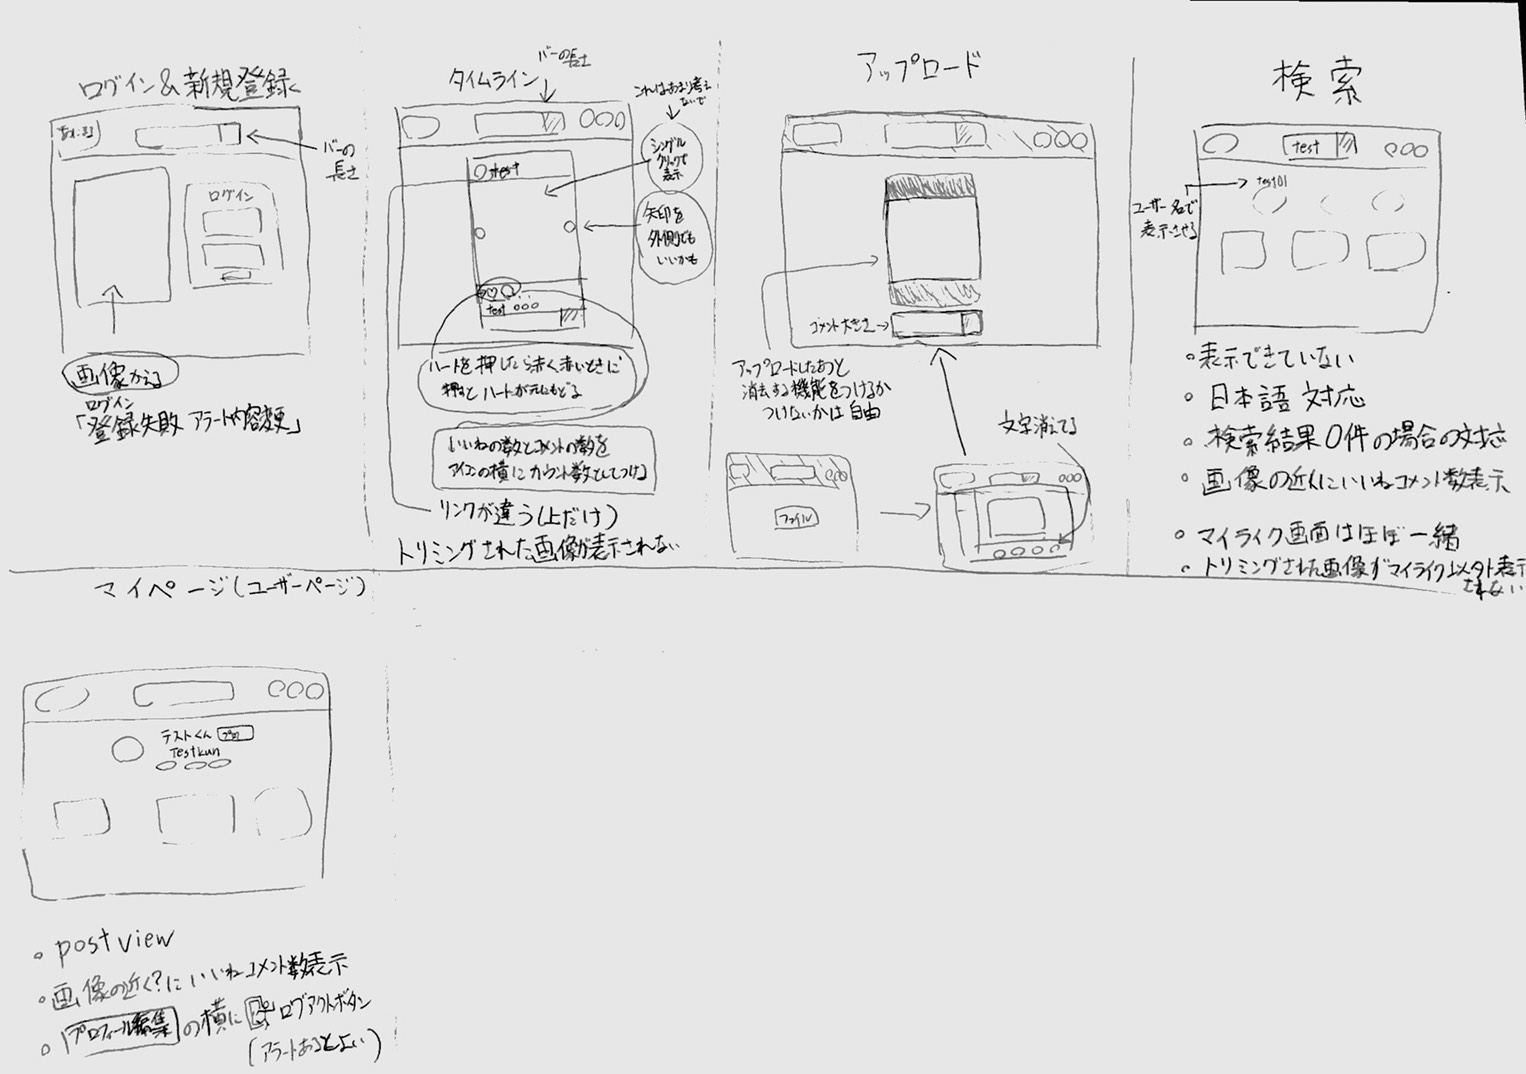 ログイン&新規登録
バーの
長さ
ログイン
画像かえる
ログイン
「登録失敗 アラート内容変更」
タイムライン
バーの長さ
これはあまり考え
ないで
シングル
クリックで
表示
test
矢印を
外側でも
いいかも
test
ハートを押したら赤く赤いときに
押すとハートが元にもどる
いいねの数とコメントの数を
アイコンの横にカウント数としてつける
リンクが違う(上だけ)
トリミングされた画像が表示されない
アップロード
コメント大きさ
アップロードしたあと
消去する機能をつけるか
つけないかは自由
文字消えてる
ファイル
検索
test
test01
ユーザー名で
表示させる
・表示できていない
・日本語対応
・検索結果0件の場合の対応
・画像の近くにいいねコメント数表示
・マイライク画面はほぼ一緒
・トリミングされた画像がマイライク以外表示
されない
マイページ(ユーザーページ)
テストくん
Testkun
・post view
・画像の近く?にいいねコメント数表示
・プロフィール編集の横に ログアウトボタン
(アラートあるとよい)